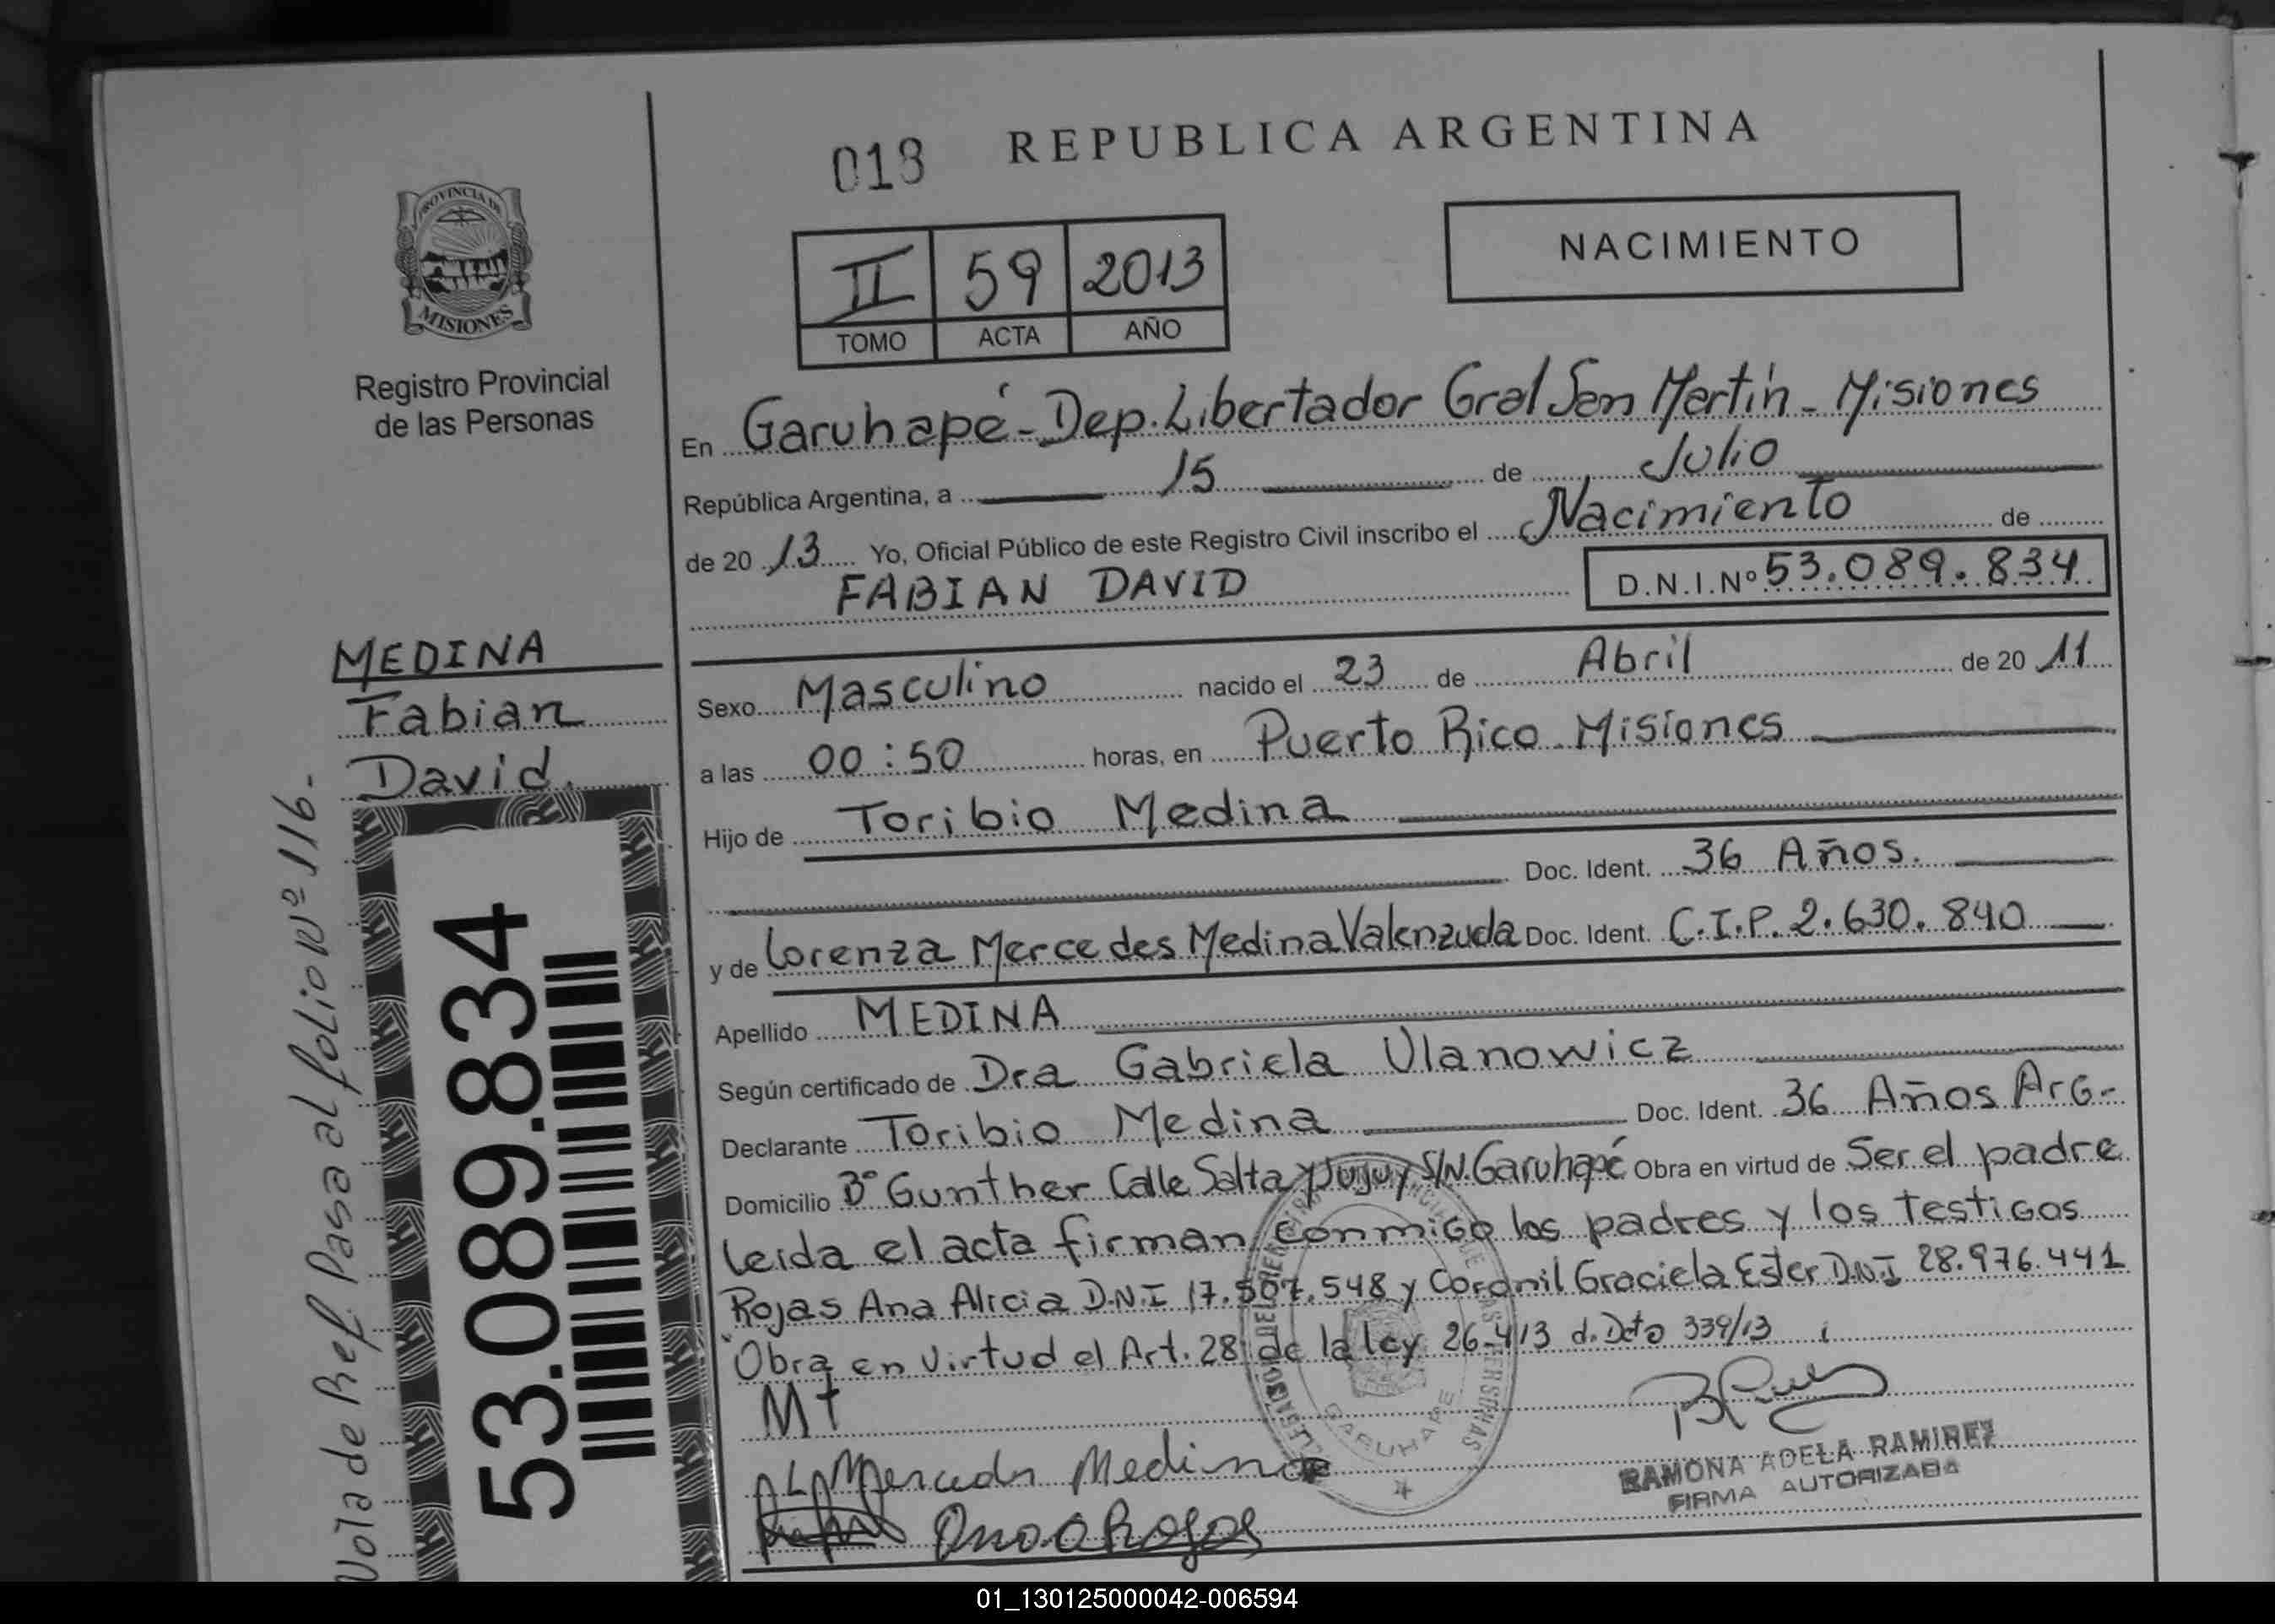 013 REPUBLICA ARGENTINA
PROVINCIA DE
MISIONES
Registro Provincial
de las Personas
NACIMIENTO
II 59 2013
TOMO ACTA AÑO
En Garuhapé - Dep. Libertador Gral San Martín - Misiones
República Argentina, a 15 de Julio
de 20 13 Yo, Oficial Público de este Registro Civil inscribo el Nacimiento de
FABIAN DAVID D.N.I.Nº 53.089.834
MEDINA
Fabian
David.
Sexo Masculino nacido el 23 de Abril de 20 11
a las 00:50 horas, en Puerto Rico - Misiones
Hijo de Toribio Medina
Doc. Ident. 36 Años.
y de Lorenza Mercedes Medina Valenzuela Doc. Ident. C.I.P. 2.630.840
Apellido MEDINA
Según certificado de Dra Gabriela Ulanowicz
Declarante Toribio Medina Doc. Ident. 36 Años Arg-
Domicilio Bº Gunther Calle Salta y Jujuy S/N. Garuhapé Obra en virtud de Ser el padre
leida el acta firman conmigo los padres y los testigos
Rojas Ana Alicia D.N.I 17.507.548 y Coronil Graciela Ester D.N.I 28.976.441
"Obra en Virtud el Art. 28 de la ley 26.413 d. Dcto 339/13
Mt
Mercedes Medina
Ana A Rojas
RAMONA ADELA RAMIREZ
FIRMA AUTORIZADA
GARUHAPE
53.089.834
Nota de Ref. Pasa al folio Nº 116.-
01_130125000042-006594